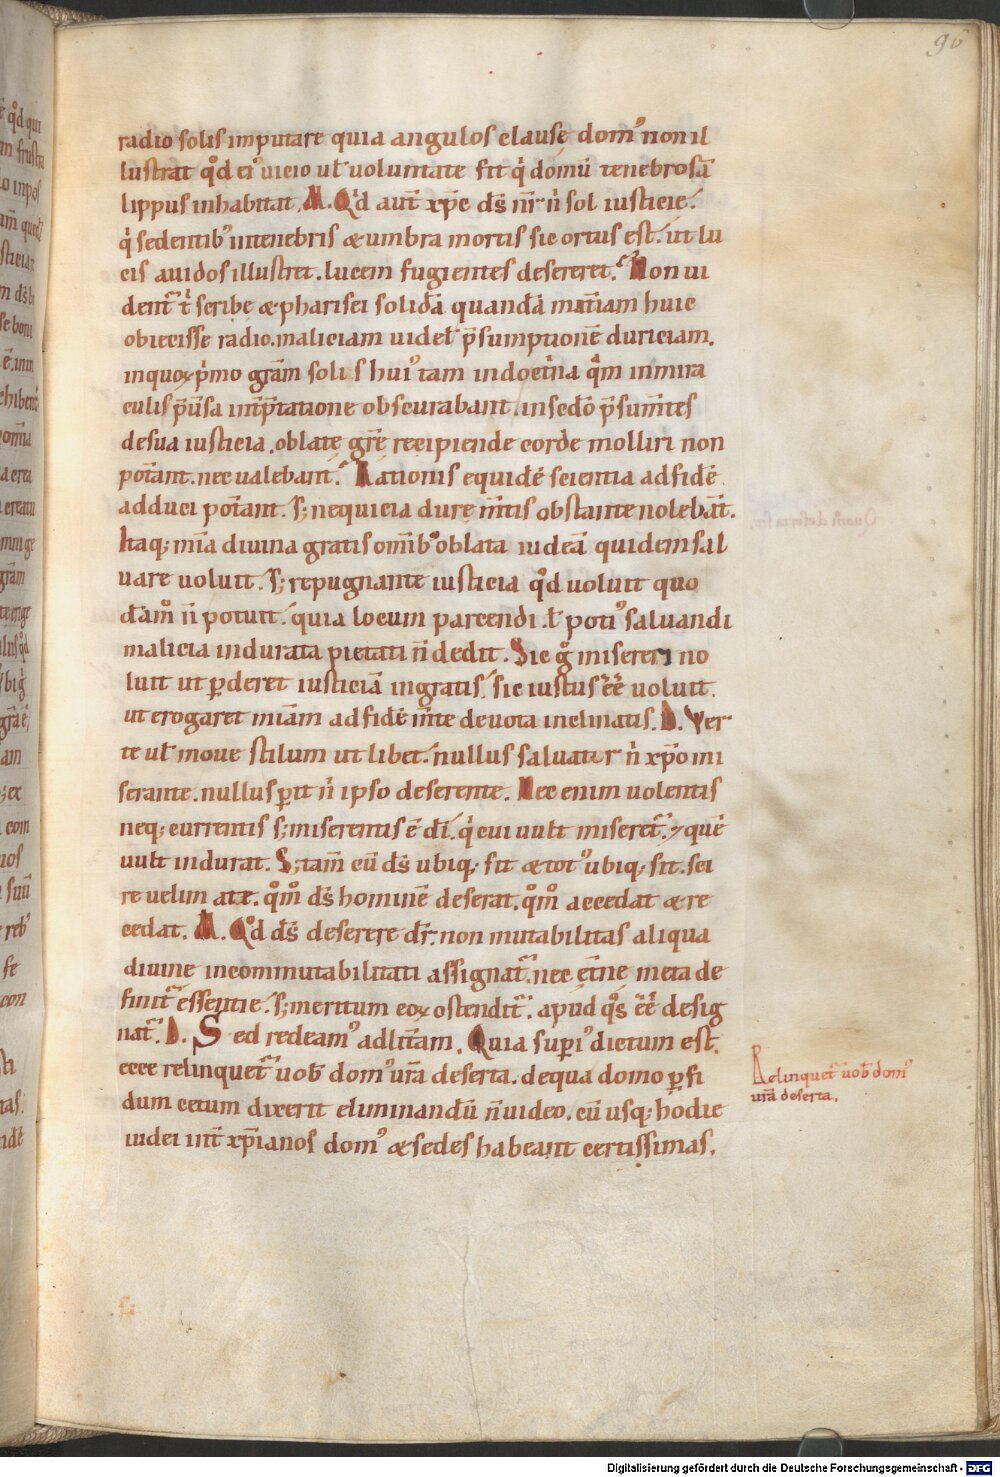 96
radio solis imputare quia angulos clausę dom᾽ non il
lustrat qd̊ ei᾽ uicio ul̄ uoluntate fit qͥ domū tenebrosā
lippus inhabitat. M. Qͥd aut̄ xp̄c ds̄ nr̄ nͥ sol iusticię.
qͥ sedentib᾽ intenebris & umbra mortis sic ortus est. ut lu
cis auidos illustret. lucem fugientes desereret. Non ui
dent̄ tͥ scribę & pharisei solidā quandā mat̄iam huic
obiecisse radio. maliciam uidel̄ p̄sumptionē duriciam.
inquoꝝ pͥmo grām solis hui᾽ tam indoctͥna qͣm inmira
culis pͥūsa int̄p̄tatione obscurabant. insedo᷒ p̄sum̄tes
desua iusticia. oblatę grē recipiendę corde molliri non
pot̄ant. nec ualebant. Rationis equidē scientia adfidē
adduci pot̄ant. s; nequicia durę m̄tis obstante nolebāt.
Itaq; mīa diuina gratis omīb᾽ oblata iudeā quidem sal
uare uoluit. s; repugnante iusticia qd̊ uoluit quo
dāmͦ n̄ potuit. quia locum parcendi. l̄ poti᾽ saluandi
malicia indurata pietati n̄ dedit. Sic gͦ misereri no
luit ut ꝑderet iusticiā ingratis. sic iustus eē̄ uoluit.
ut erogaret mīam adfidē m̄te deuota inclinatis. D. Ver
te ul̄ moue stilum ut libet. nullus saluatur nͥ xp̄o mi
serante. nullus ꝑit nͥ ipso deserente. Nec enim uolentis
neq; currentis s; miserentis ē dī. qͥ cui uult miseret̄. ⁊ quē
uult indurat. S; tam̄ cū ds̄ ubiq; sit & tot᾽ ubiq; sit. sci
re uelim ate. qͦmͦ ds̄ hominē deserat. qͦmͦ accedat & re
cedat. M. Qd̊ ds̄ deserere dr̄. non mutabilitas aliqua
diuinę incommutabilitati assignat̄. nec et̄nę meta de
finit̄ essentię. s; meritum eoꝝ ostendit̄. apud qͦs eē̄ desig
nat̄. D. Sed redeam᾽ adlit̄am. Quia supi᾽ dictum est.
ecce relinquet̄ uob̄ dom᾽ ur̄a deserta. dequa domo ꝑfi
dum cetum dixerit eliminandū n̄ uideo. cū usq; hodie
iudei int̄ xp̄ianos dom᾽ & sedes habeant certissimas.
Relinquet̄ uob̄ dom᾽
ur̄a deserta.
Digitalisierung gefördert durch die Deutsche Forschungsgemeinschaft - DFG